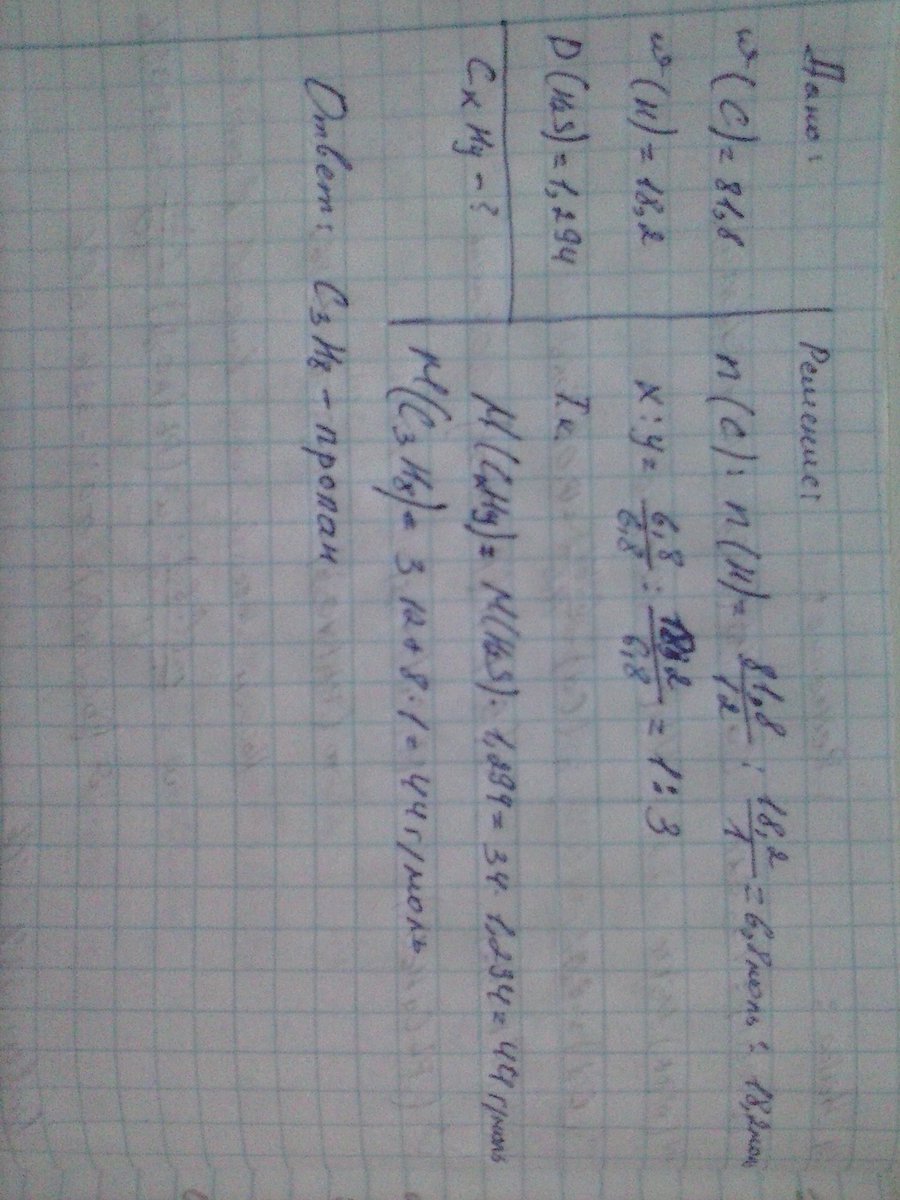 Дано:
w(C)=81,8
w(H)=18,2
D(H2S)=1,294
CxHy-?
Решение:
n(C):n(H)= 81,8/12 : 18,2/1 =6,8моль: 18,2мол
x:y= 6,8/6,8 : 18,2/6,8 =1:3
Т.к.
M(CxHy)= M(H2S)·1,294=34·1,294=44г/моль
M(C3H8)=3·12+8·1=44г/моль
Ответ: C3H8-пропан